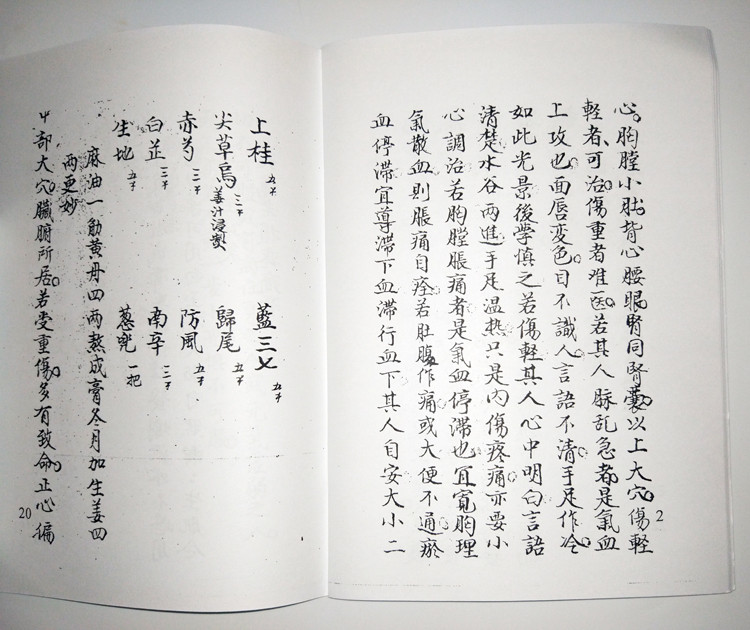 心胸膛小肚背心腰眼腎同腎囊以上大穴傷輕
輕者可治傷重者难医若其人脉乱急者是氣血
上攻也面唇变色目不識人言語不清手足作冷
如此光景後學慎之若傷輕其人心中明白言語
清楚水谷两進手足温热只是内傷疼痛亦要小
心調治若胸膛脹痛者是氣血停滞也宜寬胸理
氣散血則脹痛自痊若肚腹作痛或大便不通瘀
血停滞宜導滞下血滞行血下其人自安大小二
2
上桂 五钱 藍三七 五钱
尖草烏 姜汁浸製 三钱 歸尾 五钱
赤芍 三钱 防風 五钱
白芷 三钱 南辛 三钱
生地 五钱 葱兜 一把
麻油一觔黄丹四两熬成膏冬月加生姜四
两更妙
中部大穴臟腑所居若受重傷多有致命正心偏
20